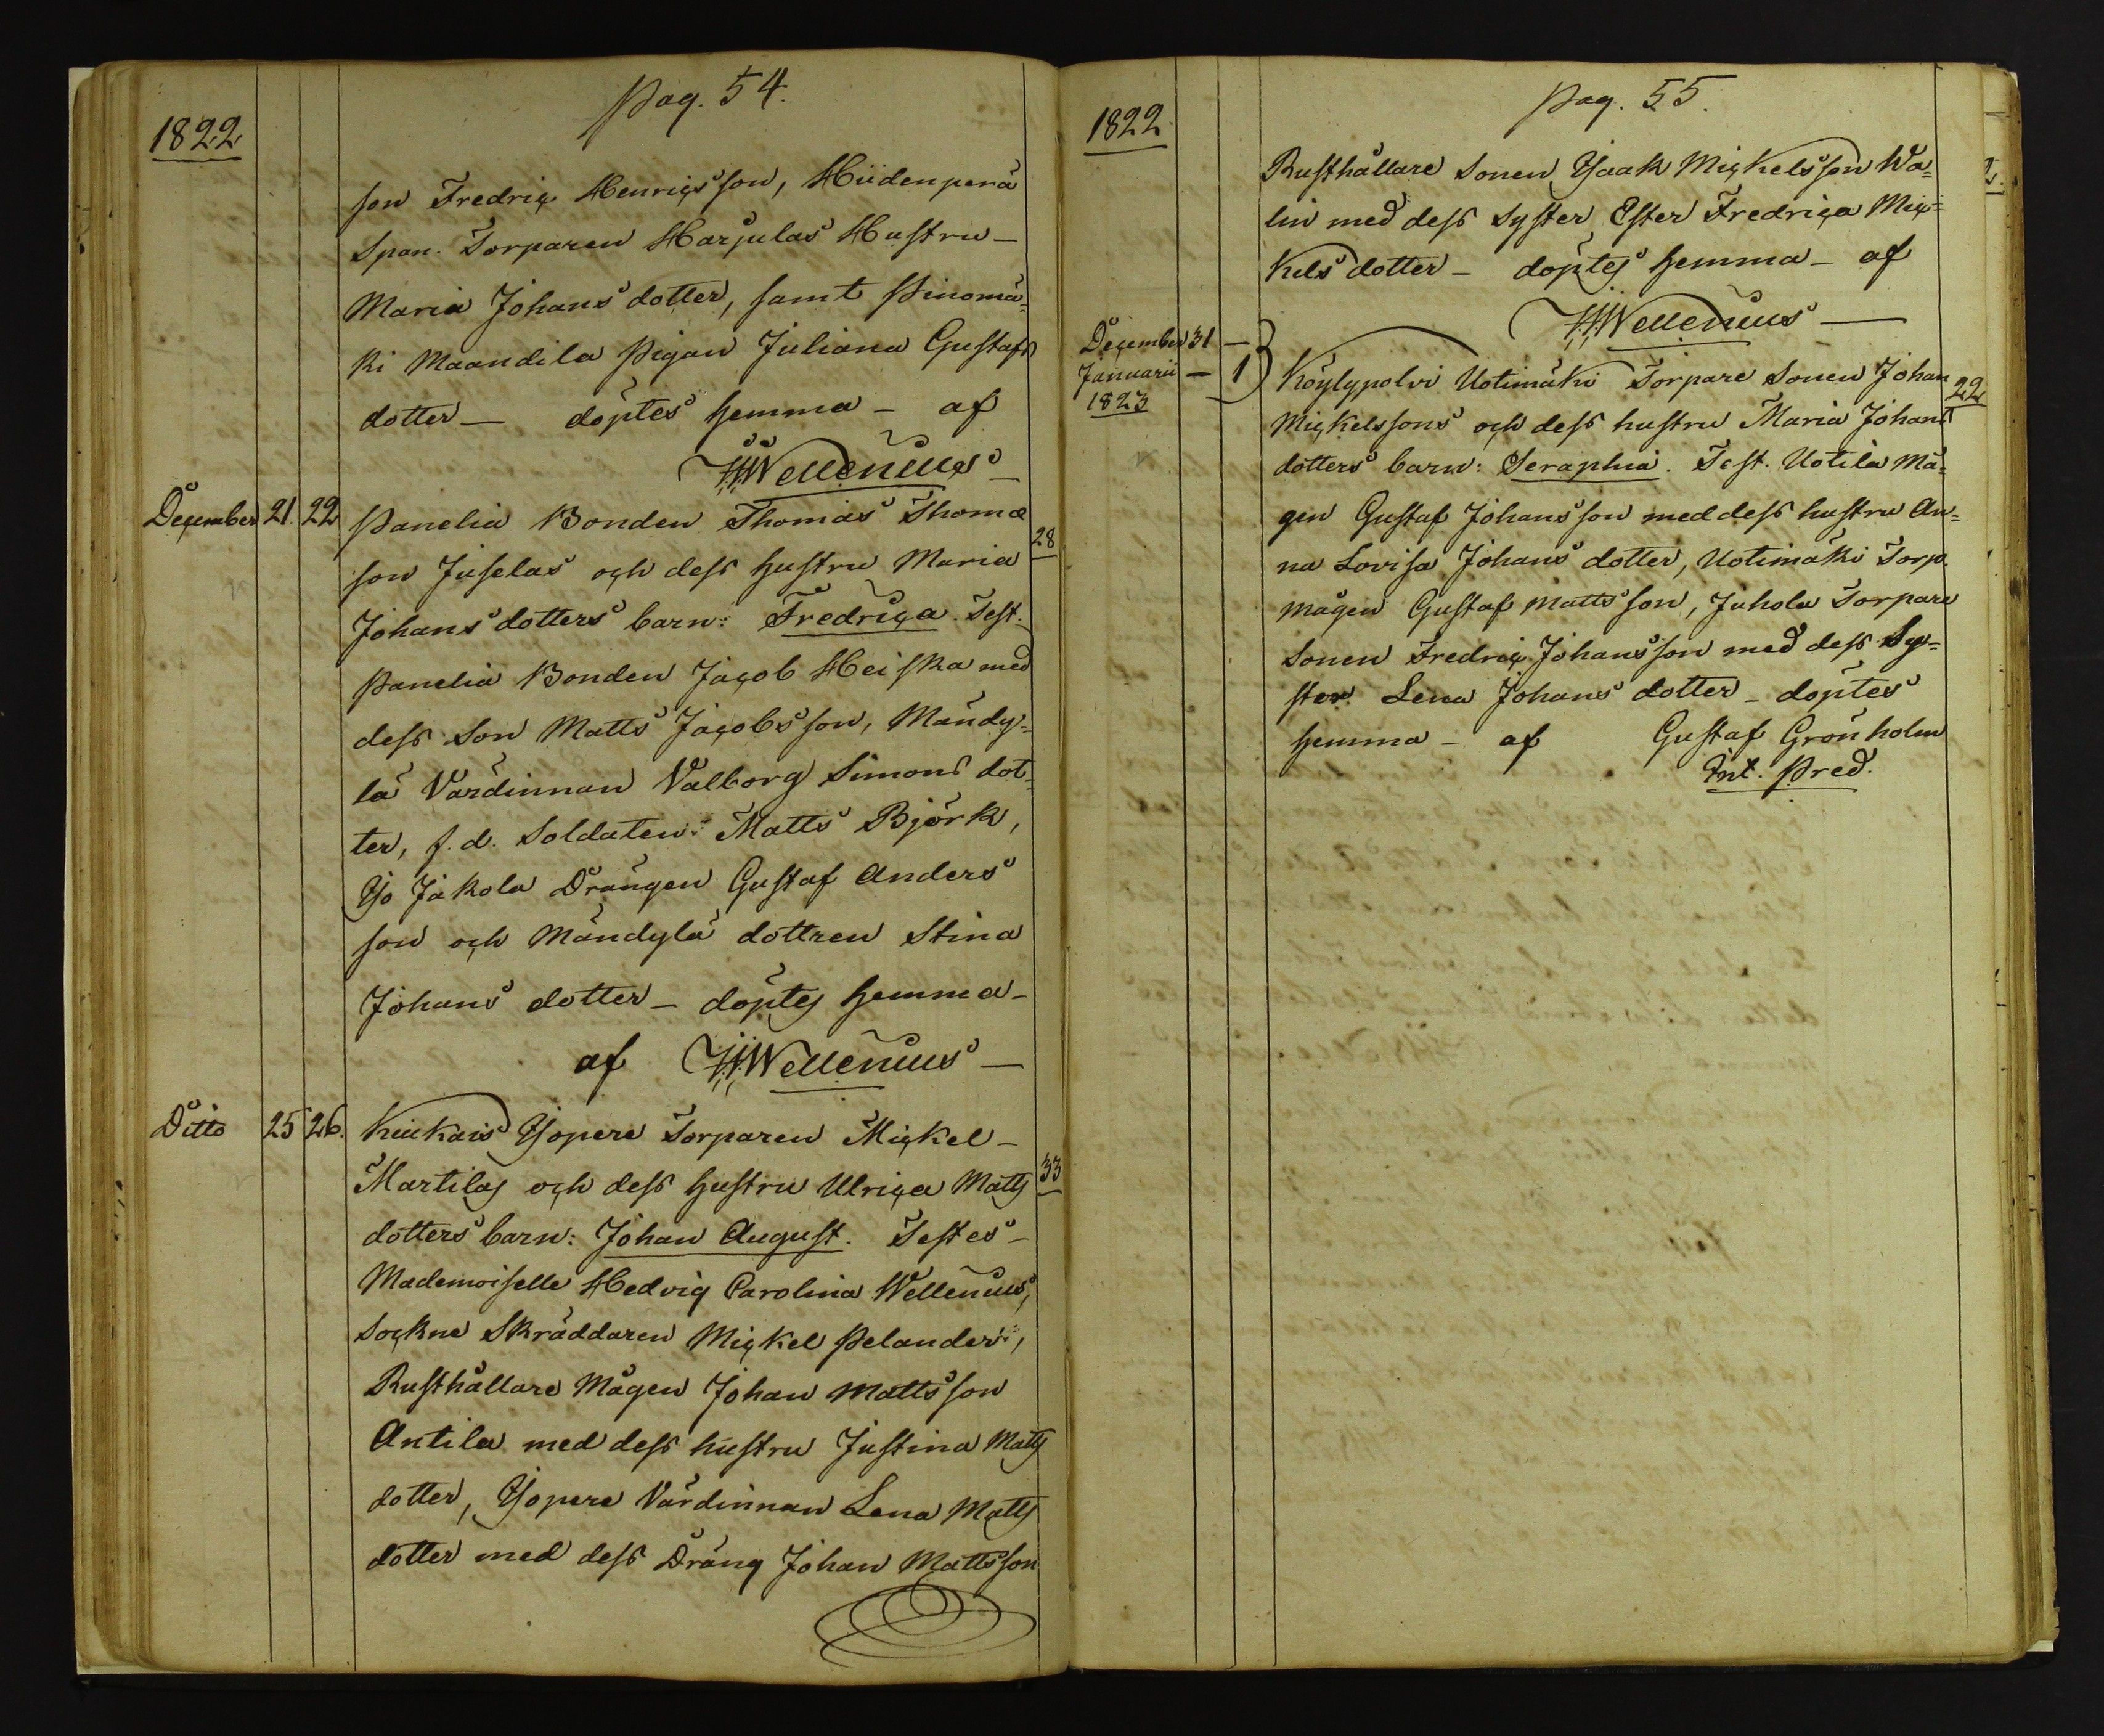 pag. 54.
1822
son Fredric Henricsson, Hiidenperä
Span. Torparen Harjulas Hustru
Maria Johans dotter, samt Pinomä=
ki Maandila Pigan Juliana Gustafs
dotter — döptes hemma — af
HWellenius
December 21. 22
Panelia Bonden Thomas Thomæ
28
son Juselas och dess hustru Maria
Johans dotters barn: Fredrica. Test.
Panelia Bonden Jacob Heiska med
dess Son Matts Jacobsson, Mändy=
lä Värdinnan Valborg Simons dot=
ter, f. d. Soldaten: Matts Björk,
Yo Jakola Drängen Gustaf Anders
son och Mändylä dottren Stina
Johans dotter — döptes hemma —
af HWellenius —
Ditto 25 26.
Kiukais Yopere Torparen Mickel —
33
Martilas och dess hustru Ulrica Matts
dotters barn: Johan August. Testes —
Mademoiselle Hedvig Carolina Wellenius,
Sockne Skräddaren Mickel Pelander:,
Rusthållare Mågen Johan Mattsson
Antila med dess hustru Justina Matts
dotter, Yopere Värdinnan Lena Matts
dotter med dess Dräng Johan Mattsson
pag. 55.
1822
Rusthållare Sonen Isaak Mickelsson Wa=
lin med dess Syster Ester Fredrica Mic=
kels dotter — döptes hemma — af
HWellenius —
December 31 —
Januarii — 1
1823
Köylypolvi Uotimäki Torpare Sonen Johan
22
Mickelssons och dess hustru Maria Johans
dotters barn: Seraphia. Test. Uotila Må=
gen Gustaf Johansson med dess hustru An=
na Lovisa Johans dotter, Uotimäki Torp.
mågen Gustaf Mattsson, Juhola Torpare
Sonen Fredric Johansson med dess Sy=
ster Lena Johans dotter — döptes
hemma — af Gustaf Grönholm
Int. Pred.